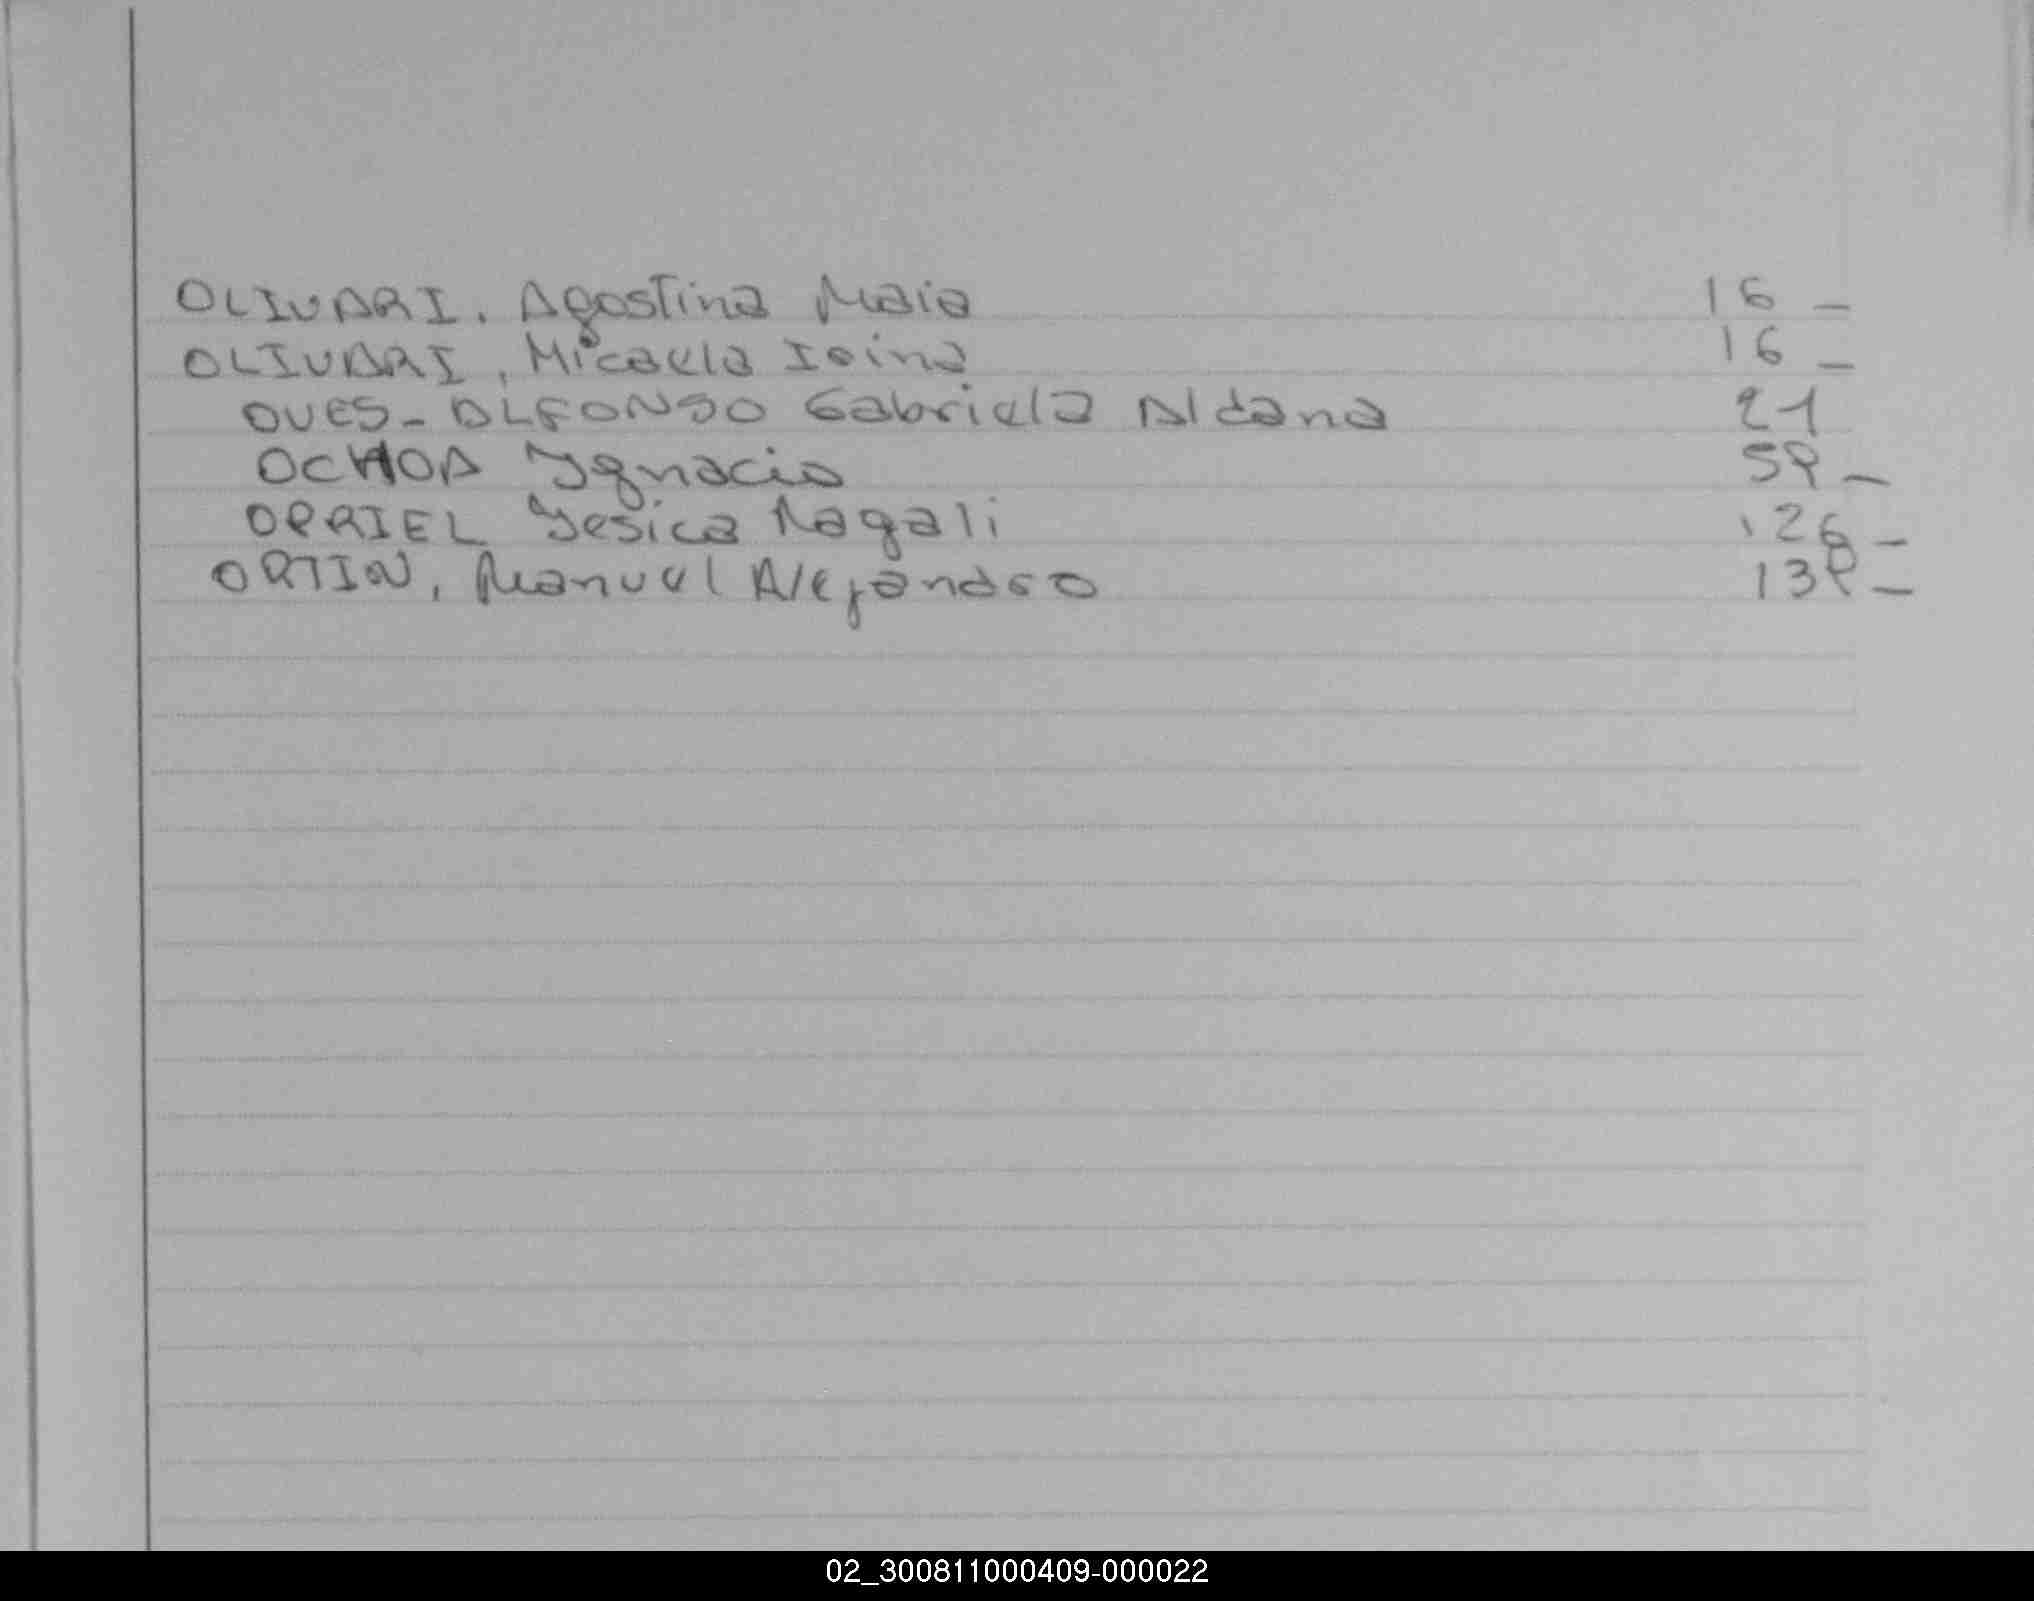 OLIVARI, Agostina Maia 16 —
OLIVARI, Micaela Ioina 16 —
OVES - ALFONSO Gabriela Aldana 21
OCHOA Ygnacio 59 —
OPRIEL Yesica Magali 126 —
ORTIN, Manuel Alejandro 139 —
02_300811000409-000022